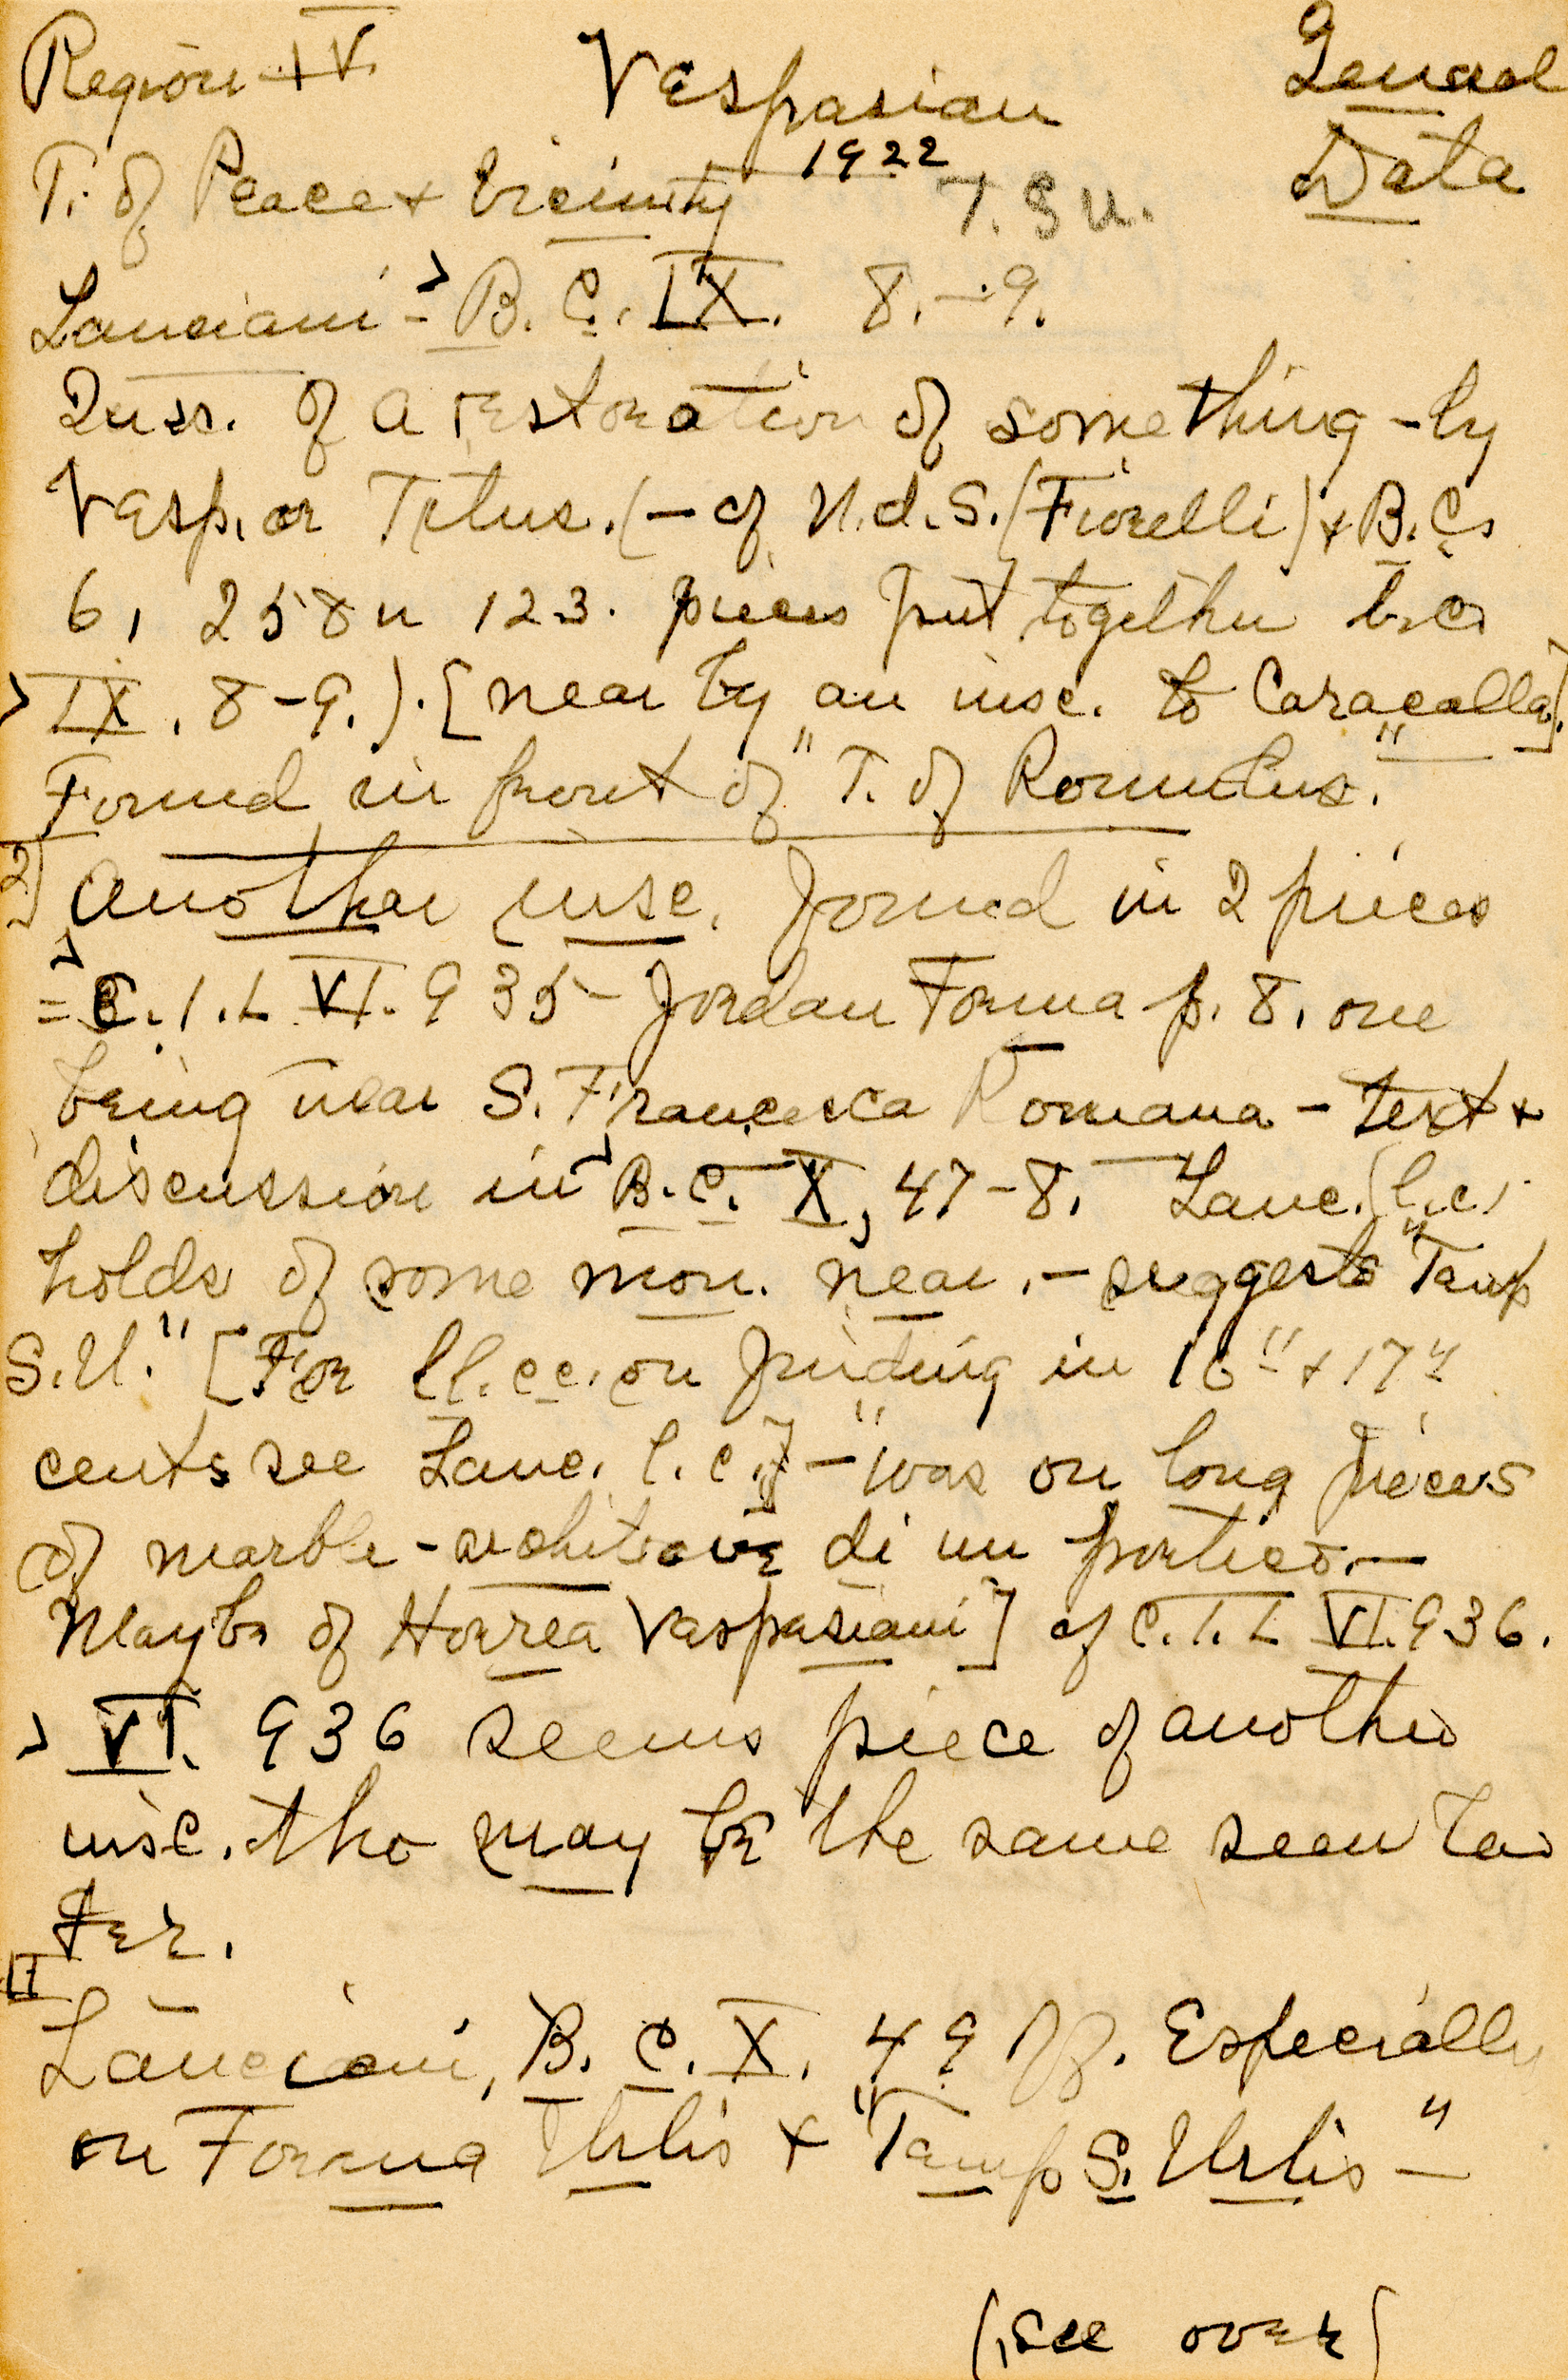 Region IV Vespasian General
1922 Data
T. of Peace + Vicinity T. S U.
Lanciani - B. C. IX. 8. - 9.
Insc. of a restoration of something - by
Vesp. or Titus. (- cf N.d.S. (Fiorelli) + B.C.
6, 258 n 123. pieces put together b.c.
IX. 8-9.). [near by an insc. to Caracalla].
Found in front of "T. of Romulus."
2] Another insc. found in 2 pieces
= C.I.L VI. 935 - Jordan Forma p. 8. one
being near S. Francesca Romana - text +
discussion in B.C. X, 47-8. Lanc. (l.c.)
holds of some mon. near. - suggests "Temp
S.U." [For ll.cc. on finding in 16" + 17"
cents see Lanc. l.c.] - "was on long pieces
of marble - architrave di un portico. -
Maybe of Horrea Vaspasiani] cf C.I.L VI. 936.
VI. 936 seems piece of another
insc. tho may be the same seen la
ter.
II
Lanciani, B. C. X. 49 ff. Especially
on Forma Urbis + "Temp S. Urbis" -
(see over)